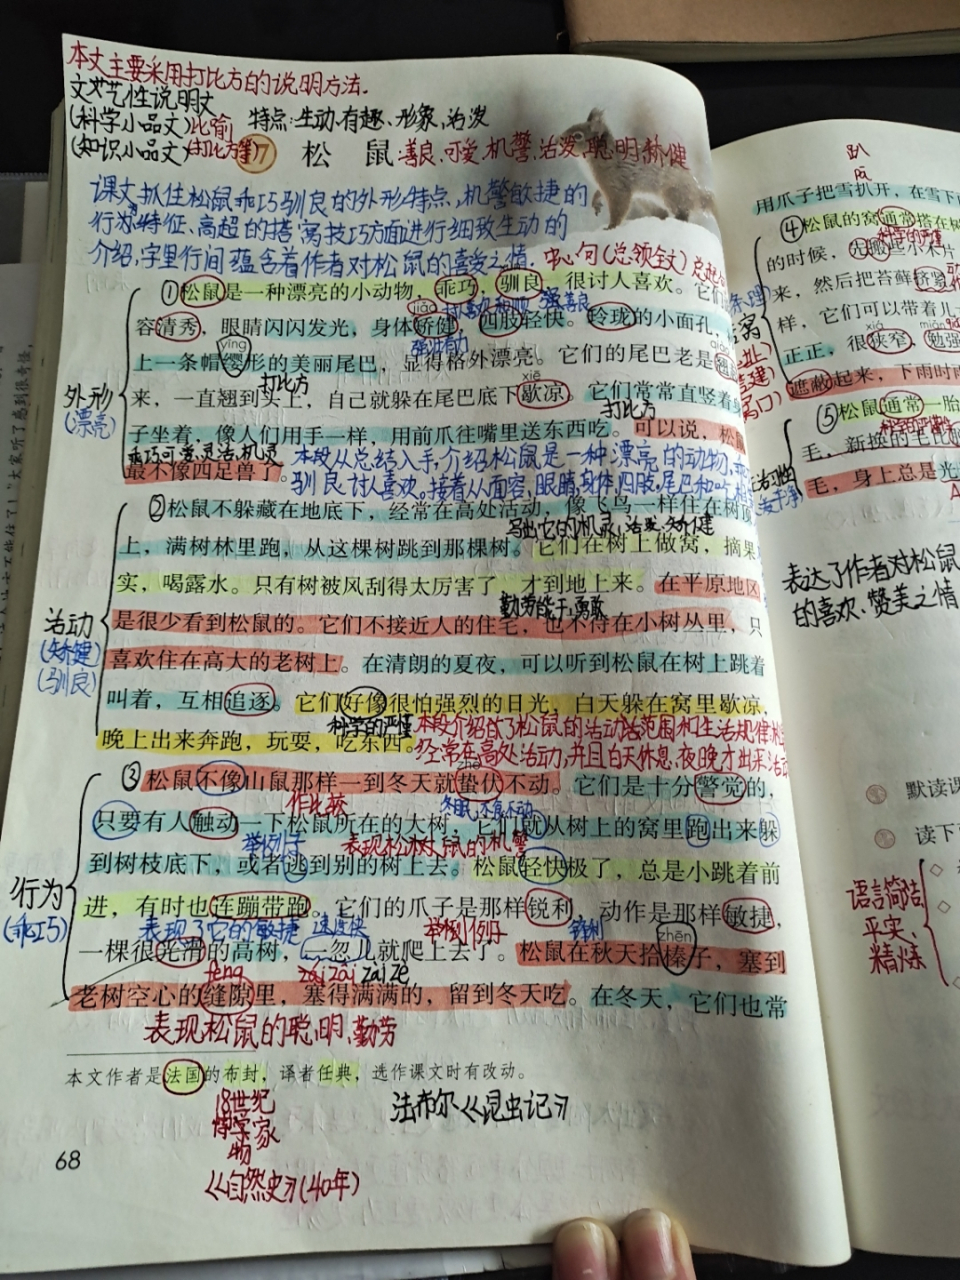 本文主要采用打比方的说明方法.
文艺性说明文
(科学小品文)比喻 特点:生动、有趣、形象、活泼
(知识小品文)(打比方等)
17 松 鼠 善良、可爱、机警、活泼、聪明、矫健
课文抓住松鼠乖巧驯良的外形特点,机警敏捷的
行为特征、高超的搭窝技巧方面进行细致生动的
介绍,字里行间蕴含着作者对松鼠的喜爱之情.
中心句(总领全文)总起
①松鼠是一种漂亮的小动物,乖巧,驯良,很讨人喜欢。它们
jiǎo
强善良
容清秀,眼睛闪闪发光,身体矫健,四肢轻快。玲珑的小面孔,
yīng
上一条帽缨形的美丽尾巴,显得格外漂亮。它们的尾巴老是翘
打比方
xiē
来,一直翘到头上,自己就躲在尾巴底下歇凉。它们常常直竖着身
打比方
子坐着,像人们用手一样,用前爪往嘴里送东西吃。可以说,松鼠
乖巧可爱,灵活,机灵
最不像四足兽了。
本段从总结入手,介绍松鼠是一种漂亮的动物,乖
驯良讨人喜欢。接着从面容,眼睛,身体,四肢,尾巴和吃相
外形
(漂亮)
②松鼠不躲藏在地底下,经常在高处活动,像飞鸟一样住在树顶
写出它的机灵、活泼、矫健
上,满树林里跑,从这棵树跳到那棵树。它们在树上做窝,摘果
实,喝露水。只有树被风刮得太厉害了,才到地上来。在平原地区
勤劳能干,勇敢
是很少看到松鼠的。它们不接近人的住宅,也不待在小树丛里,只
喜欢住在高大的老树上。在清朗的夏夜,可以听到松鼠在树上跳着
叫着,互相追逐。它们好像很怕强烈的日光,白天躲在窝里歇凉,
科学的严谨
晚上出来奔跑,玩耍,吃东西。
本段介绍了松鼠的活动范围和生活规律
经常在高处活动,并且白天休息,夜晚才出来活动
活动
(矫健)
(驯良)
③松鼠不像山鼠那样一到冬天就蛰伏不动。它们是十分警觉的,
作比较
冬眠,不食不动
只要有人触动一下松鼠所在的大树,它们就从树上的窝里跑出来躲
举例子
表现松鼠的机警
到树枝底下,或者逃到别的树上去。松鼠轻快极了,总是小跳着前
进,有时也连蹦带跑。它们的爪子是那样锐利,动作是那样敏捷,
表现了它的敏捷 速度快
举例子
zhēn
一棵很光滑的高树,一忽儿就爬上去了。松鼠在秋天拾榛子,塞到
feng
老树空心的缝隙里,塞得满满的,留到冬天吃。在冬天,它们也常
表现松鼠的聪明、勤劳
行为
(乖巧)
本文作者是法国的布封,译者任典,选作课文时有改动。
18世纪
博学家
物
《自然史》(40年)
法布尔《昆虫记》
68
趴
pā
用爪子把雪扒开,在雪下
④松鼠的窝通常搭在树
科学的严谨
的时候,先搬些小木片
来,然后把苔藓挤紧
样,它们可以带着儿
xiá
正正,很狭窄,勉强
遮蔽起来,下雨时雨
⑤松鼠通常一胎
毛,新换的毛比
毛,身上总是光
表达了作者对松鼠
的喜欢、赞美之情
默读课
读下
语言简洁
平实、
精炼